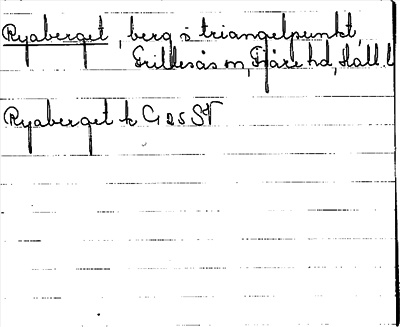 Ryaberget, berg o triangelpunkt,
Grillesås sn, Fjäre hd, Hall. l
Ryaberget k G 25 ST